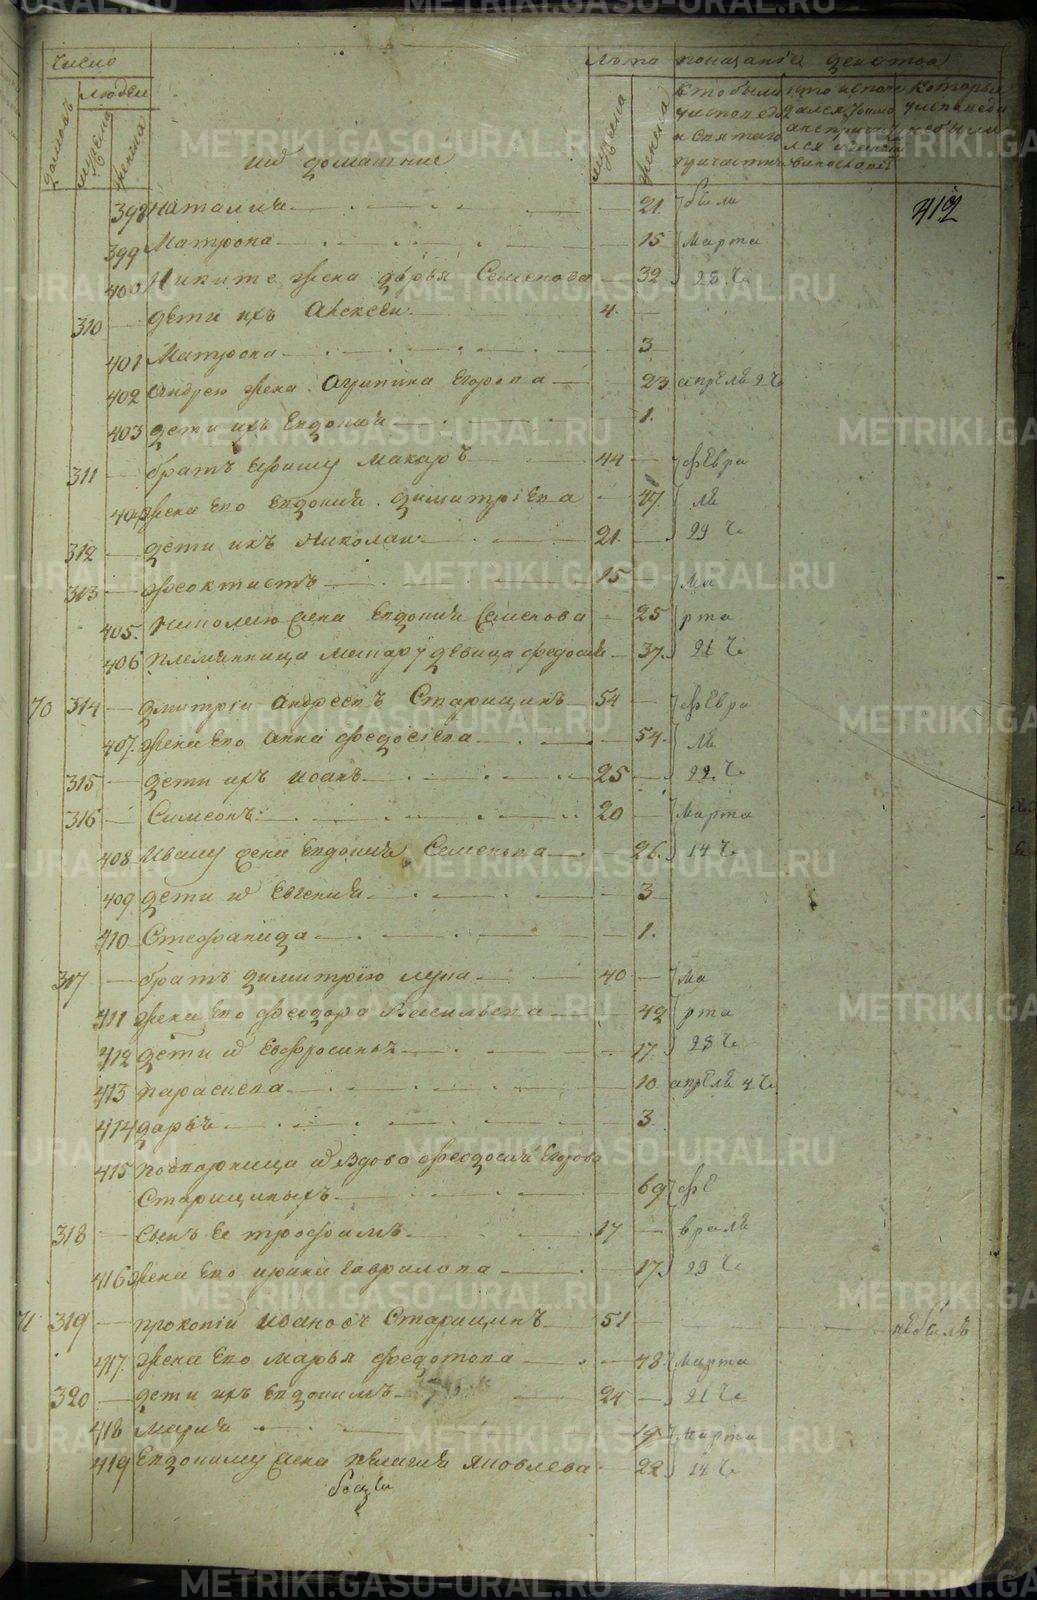 число
людей
домовъ
мужеска
женска
и домашние
лѣта
показанїи действа
мужеска
женска
кто были
у исповеди
и святаго
причастия
которыи
у исповеди
не были
412
398 Наталия 21 были
399 Матрона 15 марта
400 Никите жена дарья Семенова 32 23 Ч.
310 дети ихъ Алексеи 4
401 Матрона 3
402 андрею жена Агрипина Егорова 23 апреля 2 Ч
403 дети ихъ Евдокия 1.
311 братъ Ефиму Макаръ 44 февра
404 жена Его Евдокия димитрїева 47 ля
312 дети ихъ Николаи 21 23 Ч
313 феоктистъ 15 ма
405. Николаю жена Евдокия Семенова 25 рта
406 племянница макару девица федосия 37. 21 Ч
70 314 дмитрїи андреевъ Старицинъ 54 февра
407. жена Его анна федосїева 54. ля
315 дети ихъ иоанъ 25 22. Ч.
316 Симеонъ 20 марта
408 Ивану жена Евдокия Семенова 26. 14 Ч
409 дети и Евгения 3
410 Стефанида 1.
317 братъ димитрїю лука 40 ма
411 жена Его феодора Васильева 42 рта
412 дети и Евфросинья 17. 23 Ч
413 параскева 10 апреля 4 Ч.
414 дарья 3
415 и вдова феодосия Егорова
Старицыныхъ 69 фе
318 сынъ Ее трофимъ 17 враля
416 жена Его ирина гаврилова 17. 23 Ч
71 319 прокопїи иоановъ Старицинъ 51 небылъ
417. жена Его марья федотова 48. марта
320 дети ихъ Евдокимъ 24 21 Ч
418 мария 19 марта
419 Евдокиму жена пелагия яковлева 22 14 Ч
METRIKI.GASO-URAL.RU